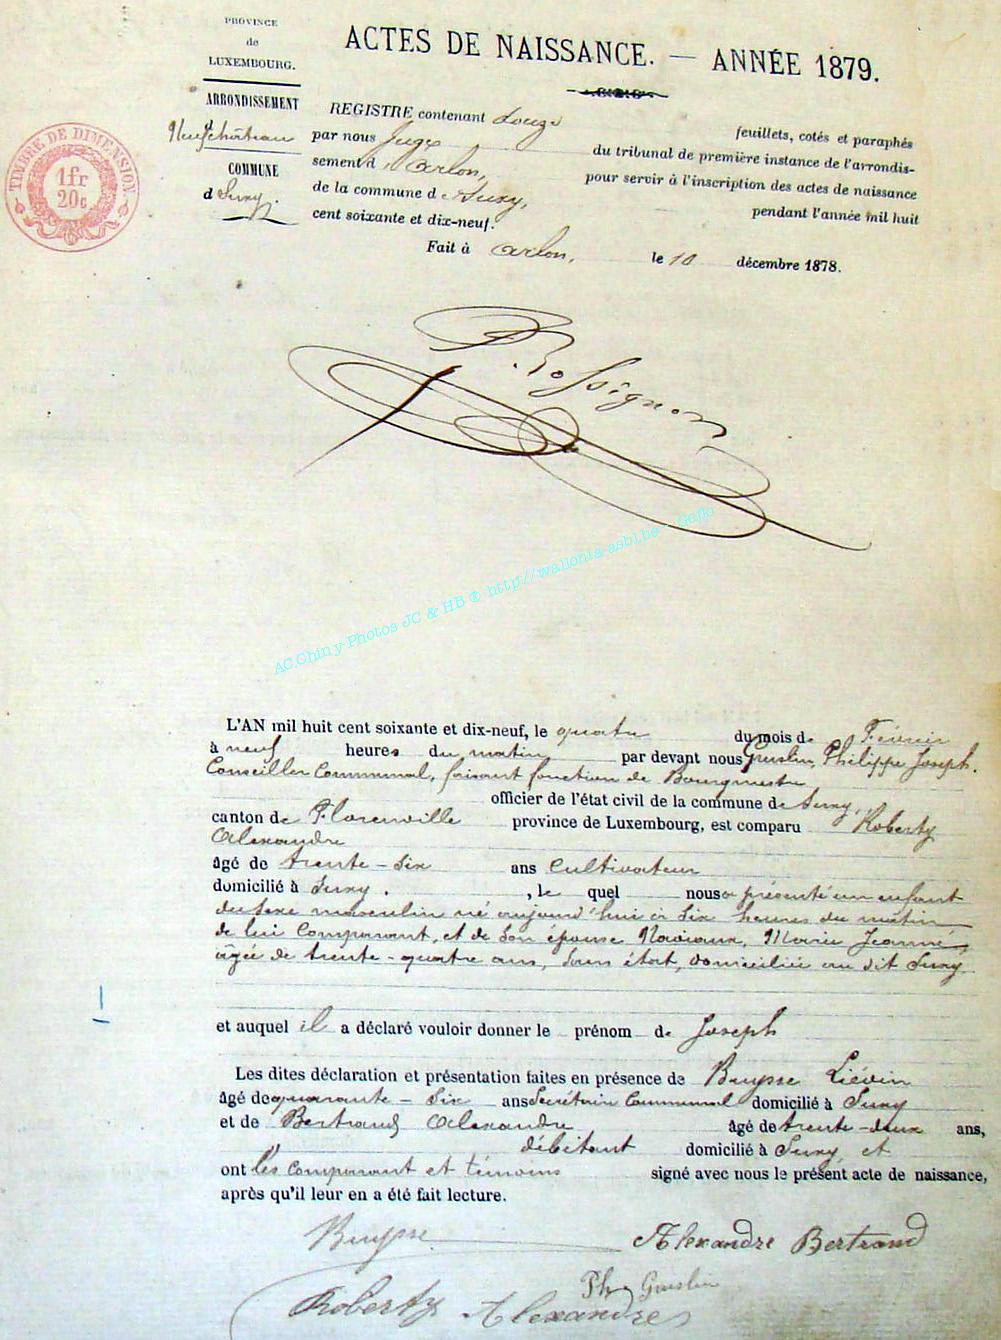 PROVINCE
de
LUXEMBOURG.
ACTES DE NAISSANCE. — ANNÉE 1879.
ARRONDISSEMENT
d
Neufchâteau
COMMUNE
d Suxy.
TIMBRE DE DIMENSION
1fr
20c
REGISTRE contenant Douze feuillets, cotés et paraphés
par nous Juge du tribunal de première instance de l'arrondis-
sement d'Arlon, pour servir à l'inscription des actes de naissance
de la commune de Suxy, pendant l'année mil huit
cent soixante et dix-neuf.
Fait à Arlon, le 10 décembre 1878.
Rossignon
AC.Chiny-Photos JC & HB © http://wallonia-asbl.be -
L'AN mil huit cent soixante et dix-neuf, le quatre du mois de Février
à neuf heures du matin par devant nous Guislin, Philippe Joseph.
Conseiller Communal, faisant fonction de Bourgmestre
officier de l'état civil de la commune de Suxy,
canton de Florenville province de Luxembourg, est comparu Roberty
Alexandre
âgé de trente-six ans cultivateur
domicilié à Suxy. , le quel nous a présenté un enfant
du sexe masculin né aujourd'hui à six heures du matin
de lui Comparant, et de son épouse Naviaux, Marie Jeanne,
âgée de trente-quatre ans, sans état, domiciliée au dit Suxy
et auquel il a déclaré vouloir donner le prénom de Joseph
Les dites déclaration et présentation faites en présence de Buysse Liévin
âgé de quarante-six ans Secrétaire Communal domicilié à Suxy
et de Bertrand Alexandre âgé de trente-deux ans,
débitant domicilié à Suxy, et
ont les comparant et témoins signé avec nous le présent acte de naissance,
après qu'il leur en a été fait lecture.
Buysse Alexandre Bertrand
Ph Guislin
Roberty Alexandre